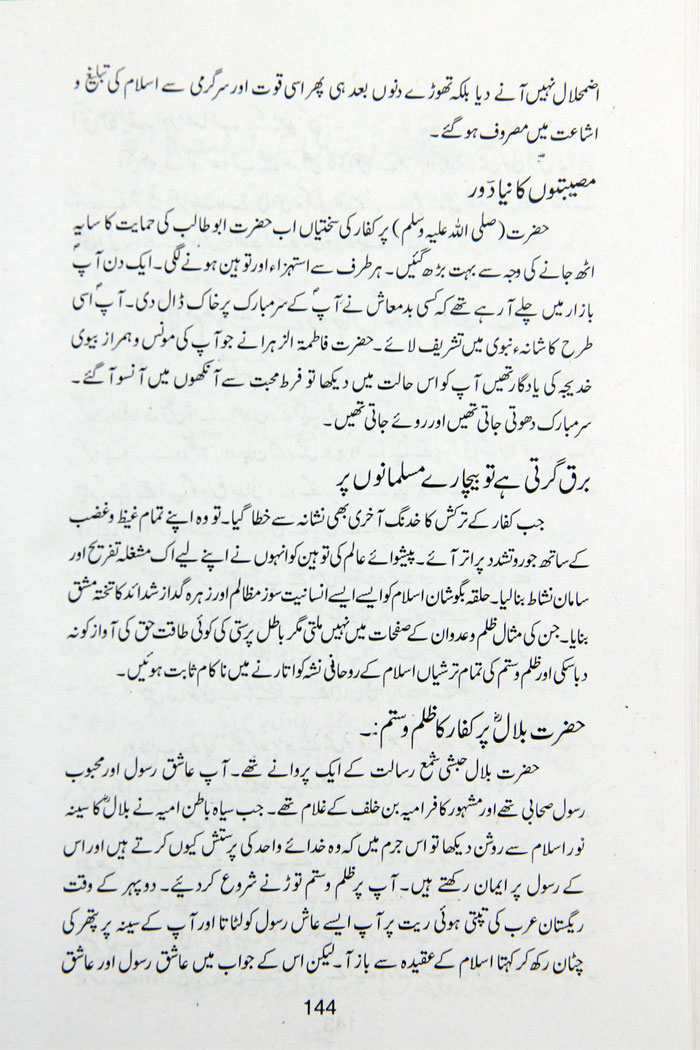 اضمحلال نہیں آنے دیا بلکہ تھوڑے دنوں بعد ہی پھر اسی قوت اور سرگرمی سے اسلام کی تبلیغ و
اشاعت میں مصروف ہو گئے۔
مصیبتوں کا نیا دَور
حضرت (صلی اللہ علیہ وسلم) پر کفار کی سختیاں اب حضرت ابو طالب کی حمایت کا سایہ
اٹھ جانے کی وجہ سے بہت بڑھ گئیں۔ ہر طرف سے استہزاء اور توہین ہونے لگی۔ ایک دن آپؐ
بازار میں چلے آ رہے تھے کہ کسی بدمعاش نے آپؐ کے سر مبارک پر خاک ڈال دی۔ آپؐ اسی
طرح کاشانہء نبوی میں تشریف لائے۔ حضرت فاطمۃ الزہرا نے جو آپ کی مونس و ہمراز بیوی
خدیجہ کی یادگار تھیں آپ کو اس حالت میں دیکھا تو فرط محبت سے آنکھوں میں آنسو آ گئے۔
سر مبارک دھوتی جاتی تھیں اور روئے جاتی تھیں۔
برق گرتی ہے تو بیچارے مسلمانوں پر
جب کفار کے ترکش کا خدنگ آخری بھی نشانہ سے خطا گیا۔ تو وہ اپنے تمام غیظ و غضب
کے ساتھ جور و تشدد پر اتر آئے۔ پیشوائے عالم کی توہین کو انہوں نے اپنے لیے اک مشغلہ تفریح اور
سامان نشاط بنا لیا۔ حلقہ بگوشان اسلام کو ایسے ایسے انسانیت سوز مظالم اور زہرہ گداز شدائد کا تختہ مشق
بنایا۔ جن کی مثال ظلم و عدوان کے صفحات میں نہیں ملتی مگر باطل پرستی کی کوئی طاقت حق کی آواز کو نہ
دبا سکی اور ظلم و ستم کی تمام ترشیاں اسلام کے روحانی نشہ کو اتارنے میں ناکام ثابت ہوئیں۔
حضرت بلالؓ پر کفار کا ظلم و ستم:۔
حضرت بلال حبشی شمع رسالت کے ایک پروانے تھے۔ آپ عاشق رسول اور محبوب
رسول صحابی تھے اور مشہور کافر امیہ بن خلف کے غلام تھے۔ جب سیاہ باطن امیہ نے بلالؓ کا سینہ
نور اسلام سے روشن دیکھا تو اس جرم میں کہ وہ خدائے واحد کی پرستش کیوں کرتے ہیں اور اس
کے رسول پر ایمان رکھتے ہیں۔ آپ پر ظلم و ستم توڑنے شروع کر دیئے۔ دوپہر کے وقت
ریگستان عرب کی تپتی ہوئی ریت پر آپ ایسے عاش رسول کو لٹاتا اور آپ کے سینہ پر پتھر کی
چٹان رکھ کر کہتا اسلام کے عقیدہ سے باز آ۔ لیکن اس کے جواب میں عاشق رسول اور عاشق
144